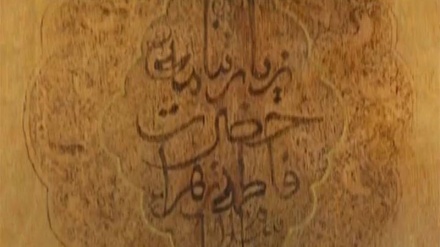 زیارتنامه
حضرت
فاطمه زهرا